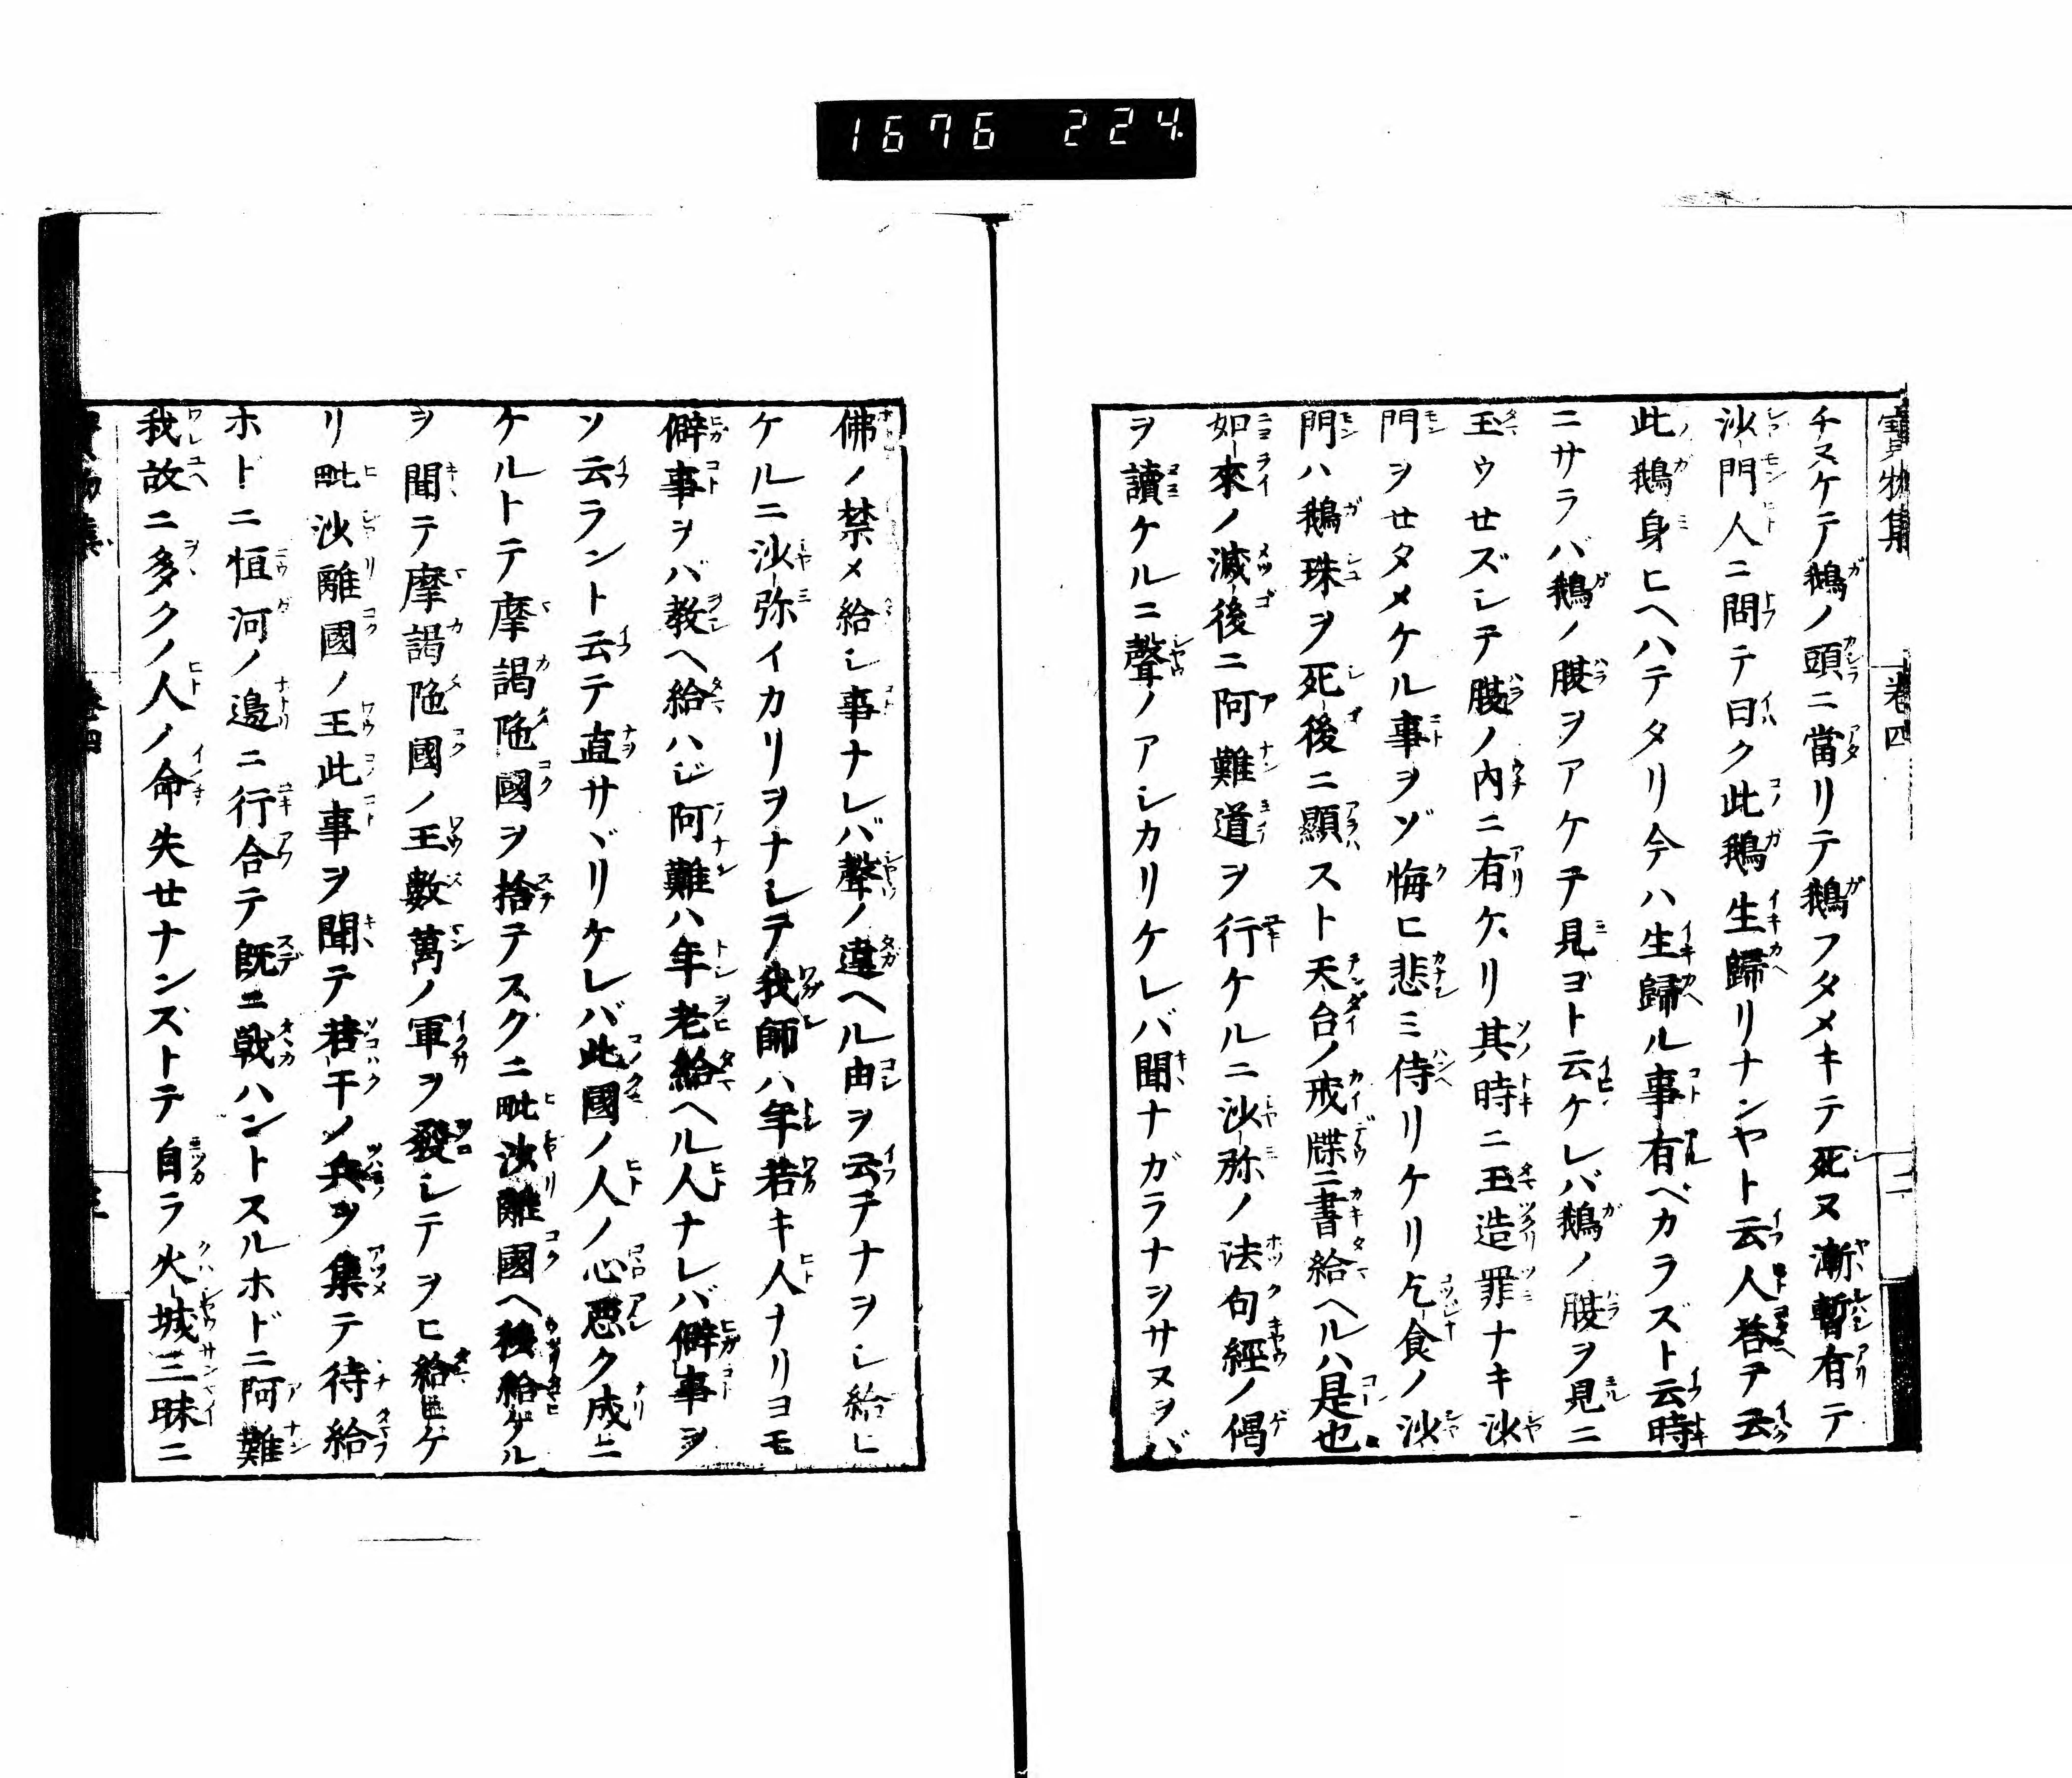 1676 224
寶物集 卷四 二
チヌケテ鵝ノ頭ニ當リテ鵝フタメキテ死ヌ漸暫有テ
沙門人ニ問テ曰ク此鵝生歸リナンヤト云人答テ云
此鵝身ヒヘハテタリ今ハ生歸ル事有ベカラズト云時
ニサラバ鵝ノ腹ヲアケテ見ヨト云ケレバ鵝ノ腹ヲ見ニ
玉ウセズシテ腹ノ内ニ有ケリ其時ニ玉造罪ナキ沙
門ヲせタメケル事ヲゾ悔ヒ悲ミ侍リケリ乞食ノ沙
門ハ鵝珠ヲ死後ニ顯スト天台ノ戒牒ニ書給ヘルハ是也
如來ノ滅後ニ阿難道ヲ行ケルニ沙弥ノ法句經ノ偈
ヲ讀ケルニ聲ノアシカリケレバ聞ナガラナヲサヌヲバ
佛ノ禁メ給シ事ナレバ聲ノ違ヘル由ヲ云テナヲシ給ヒ
ケルニ沙弥イカリヲナシテ我師ハ年若キ人ナリヨモ
僻事ヲバ教ヘ給ハジ阿難ハ年老給ヘル人ナレバ僻事ヲ
ソ云ラント云テ直サヾリケレバ此國ノ人ノ心悪ク成ニ
ケルトテ摩謁陁國ヲ捨テスクニ毗沙離國ヘ移給ケル
ヲ聞テ摩謁陁國ノ王數萬ノ軍ヲ發シテヲヒ給ヒケ
リ毗沙離國ノ王此事ヲ聞テ若干ノ兵ヲ集テ待給
ホドニ恒河ノ邉ニ行合テ既ニ戰ハントスルホドニ阿難
我故ニ多クノ人ノ命失せナンズトテ自ラ火城三昧ニ